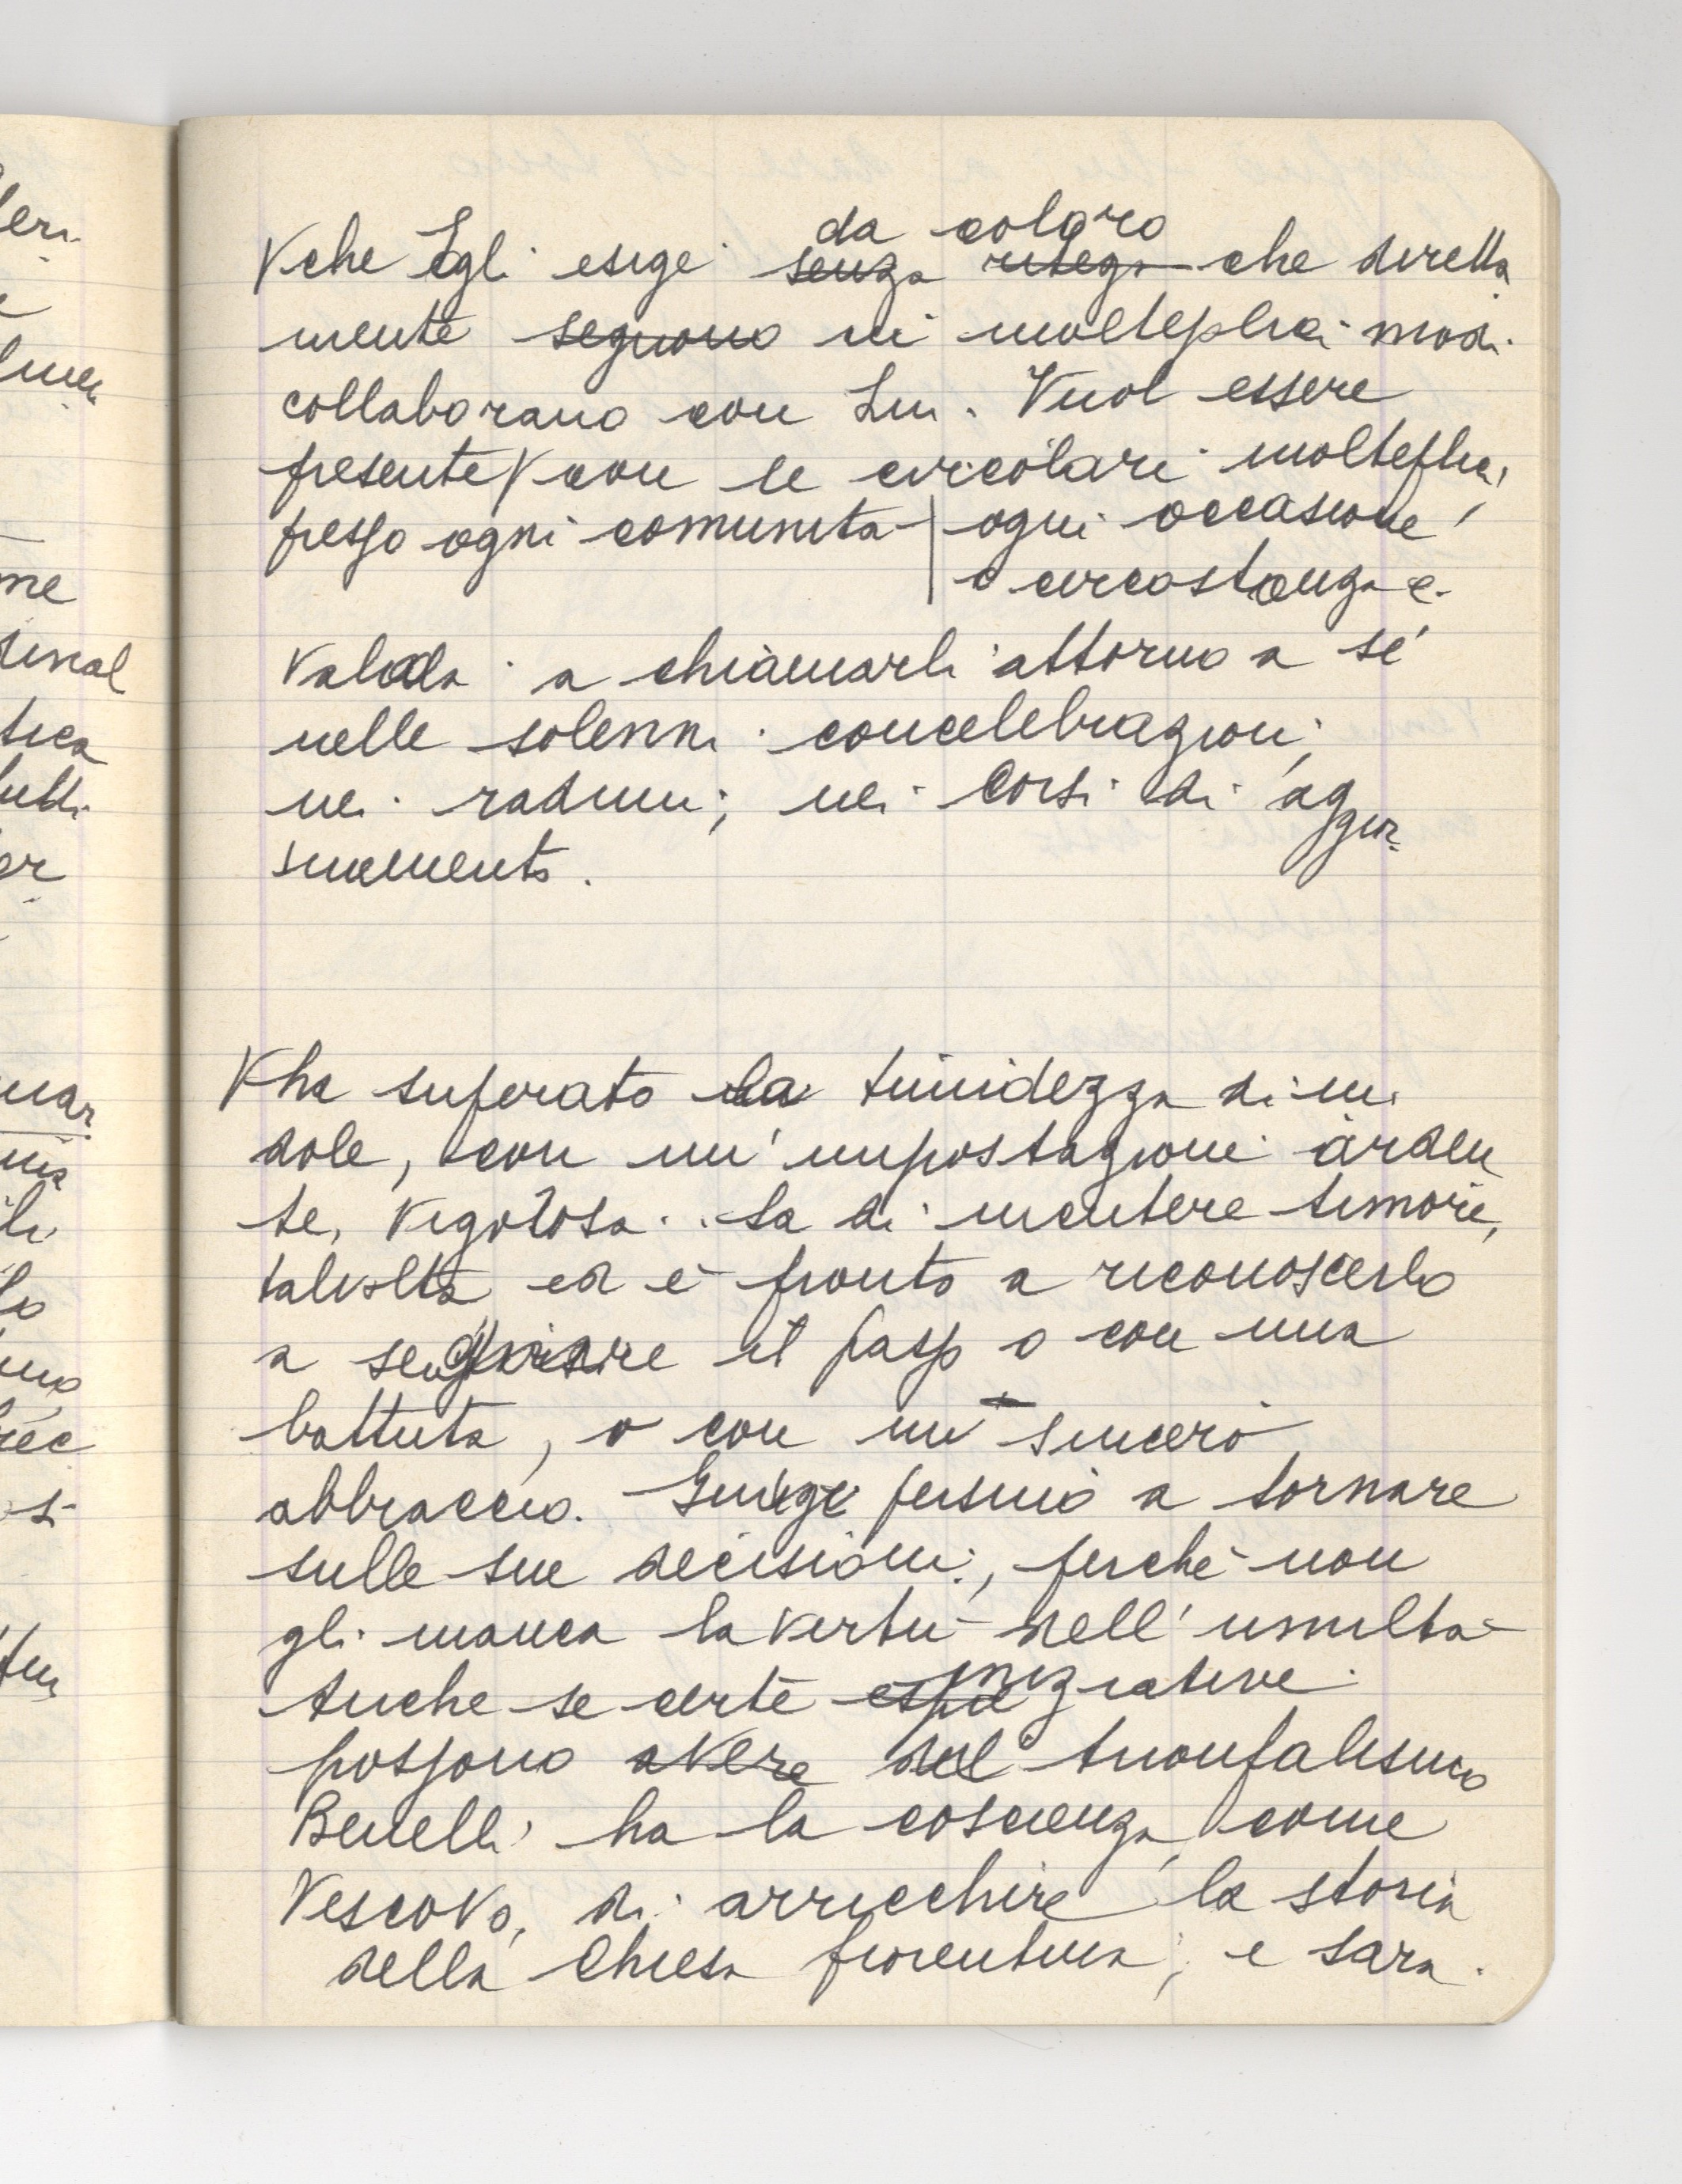 V che Egli esige da coloro che diretta
mente in molteplici modi
collaborano con Lui. Vuol essere
presente V con le circolari molteplici,
presso ogni comunità | ogni occasione
o circostanza e.
valida a chiamarli attorno a sé
nelle solenni concelebrazioni,
nei raduni; nei corsi di aggior
namento.
V ha superato la timidezza di in
dole, con un'impostazione arden
te, vigorosa. Sa di incutere timore,
talvolta ed è pronto a riconoscerlo
a il passo con una
battuta, o con un sincero
abbraccio. Giunge persino a tornare
sulle sue decisioni, perché non
gli manca la virtù dell'umiltà
Anche se certe iniziative
possono avere del trionfalismo
Benelli ha la coscienza, come
Vescovo, di arricchire la storia
della Chiesa fiorentina; e sarà